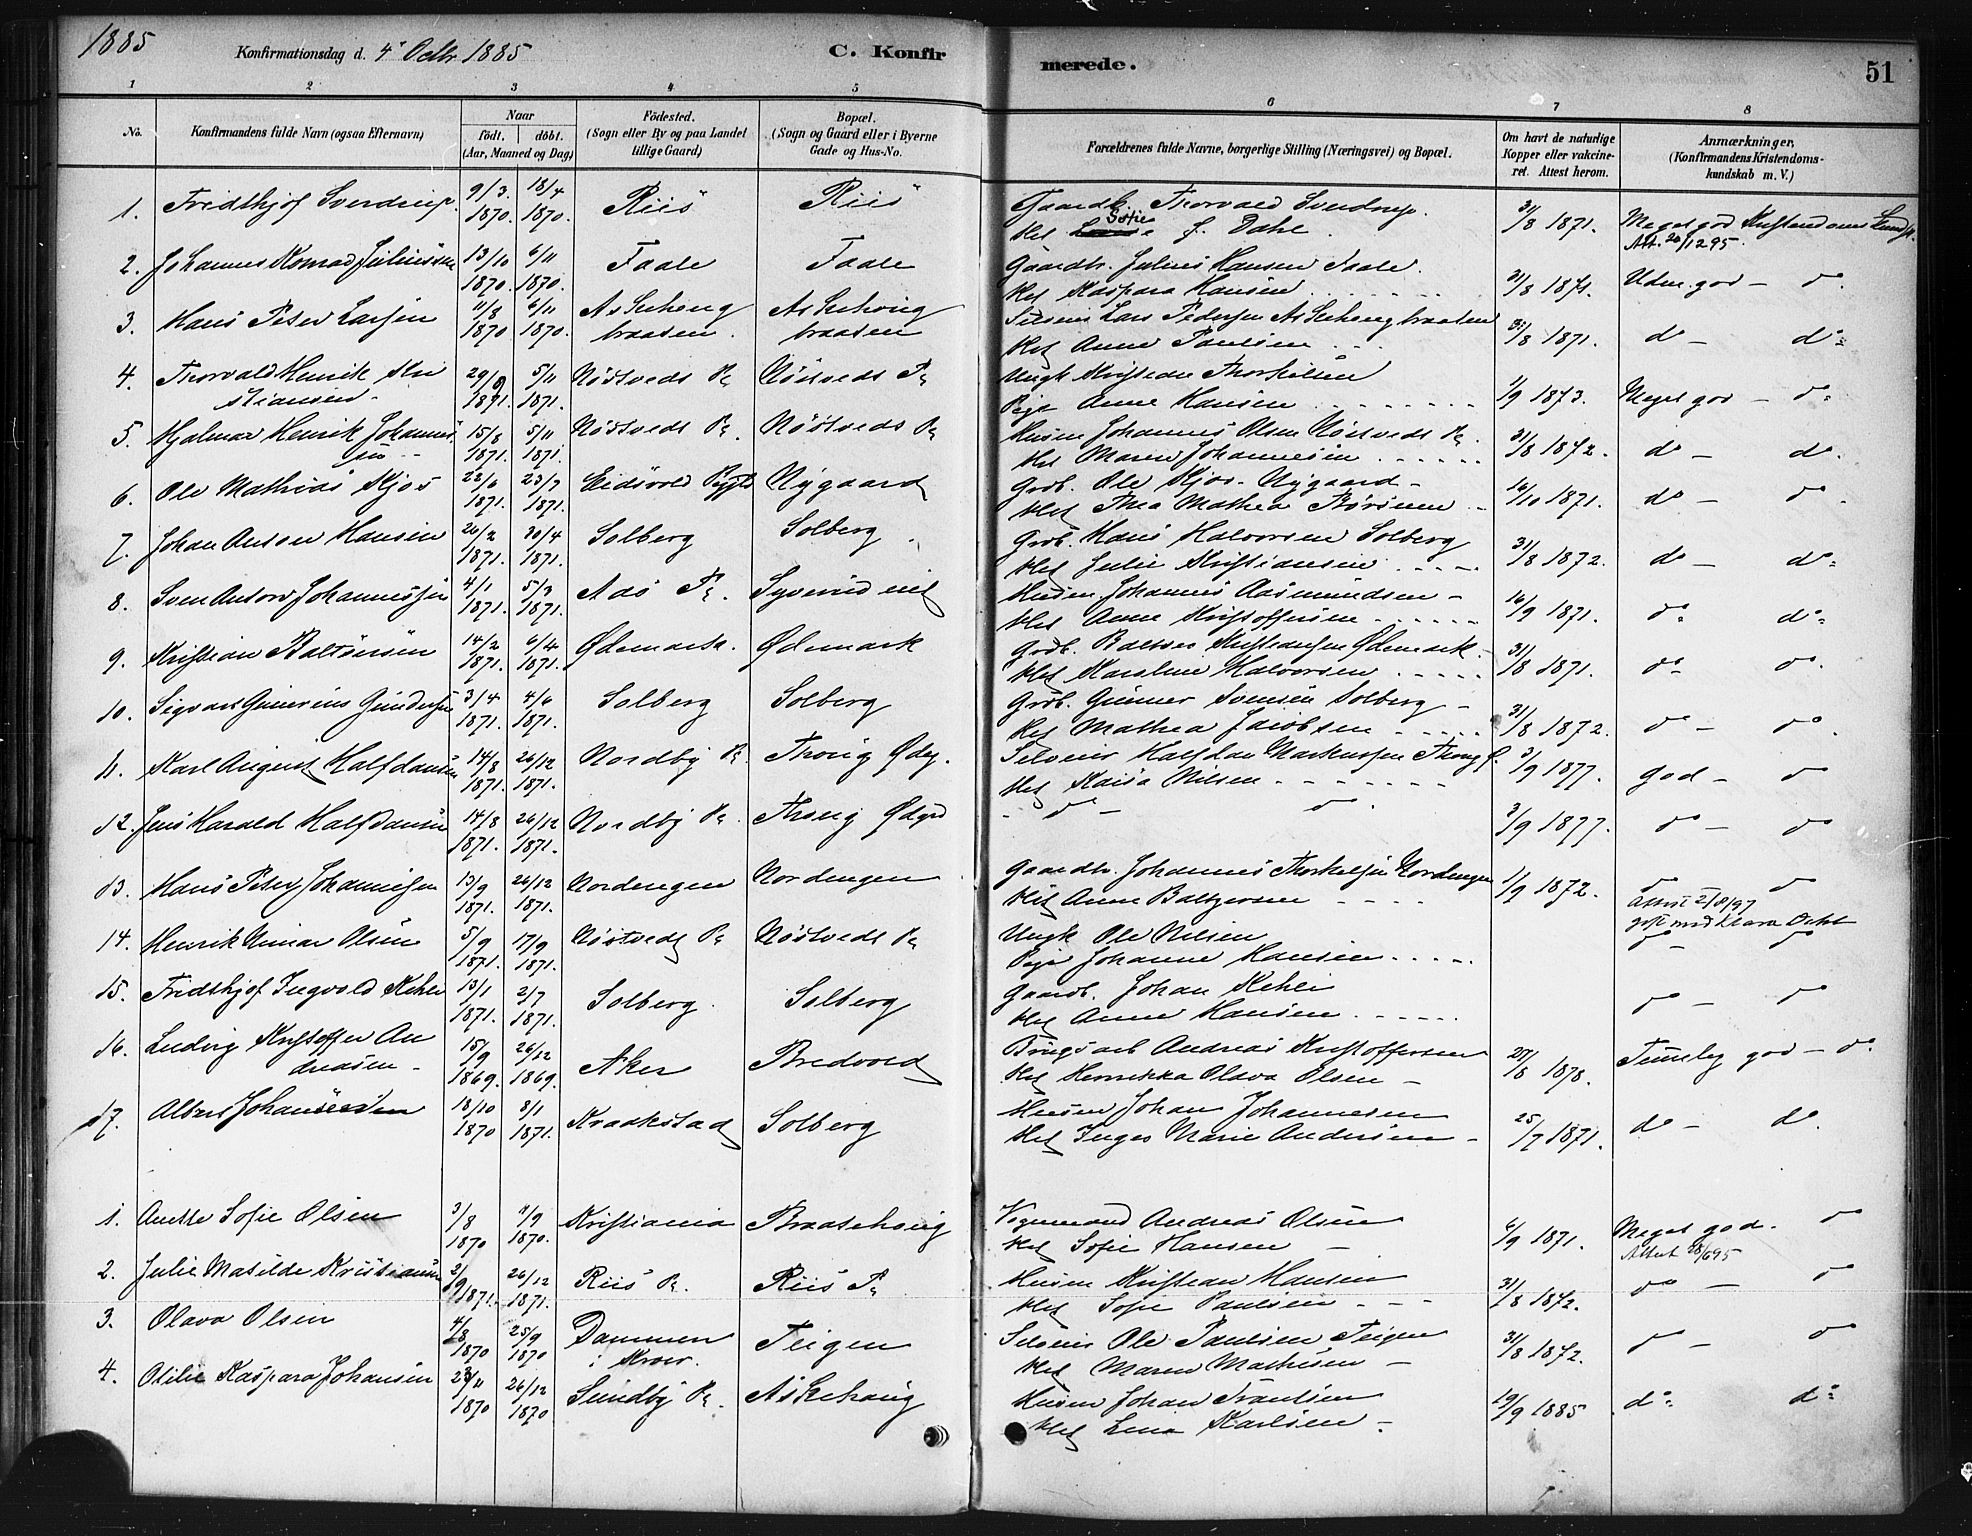 1885
Konfirmationsdag d. 4' Octbr 1885
C. Konfirmerede.
51
1 2 3 4 5 6 7 8
No.
Konfirmandens fulde Navn (ogsaa Efternavn)
Naar
født. døbt.
(Aar, Maaned og Dag)
Fødested.
(Sogn eller By og paa Landet
tillige Gaard)
Bopæl.
(Sogn og Gaard eller i Byerne
Gade og Hus-No.
Forældrenes fulde Navne, borgerlige Stilling (Næringsvei) og Bopæl.
Om havt de naturlige
Kopper eller vakcine-
ret. Attest herom.
Anmærkninger,
(Konfirmandens Kristendoms-
kundskab m. V.)
1. Fridthjof Sverdrup. 9/3 1870. 18/4 1870. Riis Riis Gaardb. Thorvald Sverdrup.
Sofie f. Dahl 31/8 1871. Meget god Kristendoms Kundsk.
Att. 20/12 95.
2. Johannes Konrad Juliussen 13/10 1870. 6/11 1870. Faale Faale Gaardb. Julius Hansen Faale.
Kaspara Hansen 31/8 1871. Uden. god - do.
3. Hans Peter Larsen 11/8 1870 6/11 1870. Askehougbraaten. Askehougbraaten Lars Pedersen Askehougbraaten
Anne Paulsen 31/8 1871. do - do
4. Thorvald Henrik Kristiansen. 29/9 1871. 5/11 1871. Nöstvedt Pl Nöstvedt Pl Ungk Kristian Thorkilsen
Pige Anne Hansen 1/9 1873. Meget god - do
5. Hjalmar Henrik Johannessen 15/8 1871. 5/11 1871. Nöstvedt Pl. Nöstvedt Pl Husm Johannes Olsen Nöstvedt Pl.
Maren Johannesen 31/8 1872. do - do.
6. Ole Mathias Kjos 22/6 1871. 23/7 1871. Eidsvold Nygaard Grdb. Ole Kjos - Nygaard -
Thea Mathea 16/10 1871. do - do
7. Johan Anton Hansen 26/2 1871. 30/4 1871. Solberg Solberg Grdb. Hans Halvorsen Solberg
Julie Kristiansen 31/8 1872. do - do
8. Sven Anton Johannessen 4/1 1871. 5/3 1871. Aas Pl. Husm. Johannes Aasmundsen -
Anne Kristoffersen 16/9 1871. do do
9. Kristian Baltsersen 14/2 1871. 6/4 1871. Ødemark. Ødemark Grdb. Baltser Kristiansen Ødemark -
Karoline Halvorsen 31/8 1871. do do
10. Sigvart Gundersen 3/4 1871. 4/6 1871. Solberg Solberg Grdb. Gunner Svensen Solberg -
Mathea Jacobsen 31/8 1872. do - do
11. Karl August Halfdansen 14/8 1871. 26/12 1871. Nordby Pl. Selveier Halfdan Markussen
Kaisa Nilsen 3/9 1877. god - do
12. Jens Harald Halfdansen 14/8 1871. 26/12 1871. Nordby Pl. - do - do. 3/9 1877. do - do
13. Hans Peter Johannesen 13/9 1871. 26/12 1871. Nordengen Nordengen Gaardb. Johannes Thorkelsen Nordengen
Anne Baltzersen 1/9 1872. do do
Attest 2/8/97
14. Henrik Olsen 5/9 1871. 17/9 1871. Nöstvedt Pl Nöstvedt Pl Ungk Ole Nilsen
Pige Johanne Hansen do - do
15. Fridthjof Ingvald 13/1 1871. 2/7 1871. Solberg. Solberg Gaardb. Johan
Anne Hansen do - do
16. Ludvig Kristoffer Andreasen - 15/9 1869. 26/12 1869. Aker Bredvold Brugsarb Andreas Kristoffersen
Henrikka Olava Olsen - 28/8 1878. Temmelig god - do
17. Albert Johansen 18/10 1870 8/1 1871. Kraakstad Solberg Husm Johan Johannesen
Marie Andersen - 25/7 1871. do - do.
1. Anette Sofie Olsen 3/8 1870 11/9 1870. Kristiania Braatehoug Andreas Olsen
Sofie Hansen - 6/9 1871. Meget god. do
Attest 95
2. Julie Matilde Kristiansen 2/9 1871. 26/12 1871. Riis Pl. Riis Pl Husm Kristian Hansen
Sofie Paulsen 31/8 1872. do - do
3. Olava Olsen 4/8 1870 25/9 1870 Dammen
i Kroer. Teigen Selveier Ole Paulsen Teigen
Maren Mathisen - 31/8 1872. do - do
4. Otilie Kaspara Johansen 23/11 1870 26/12 1870 Sundby Pl. Askehoug Husm Johan
Lina Karlsen - 19/9 1885 do do